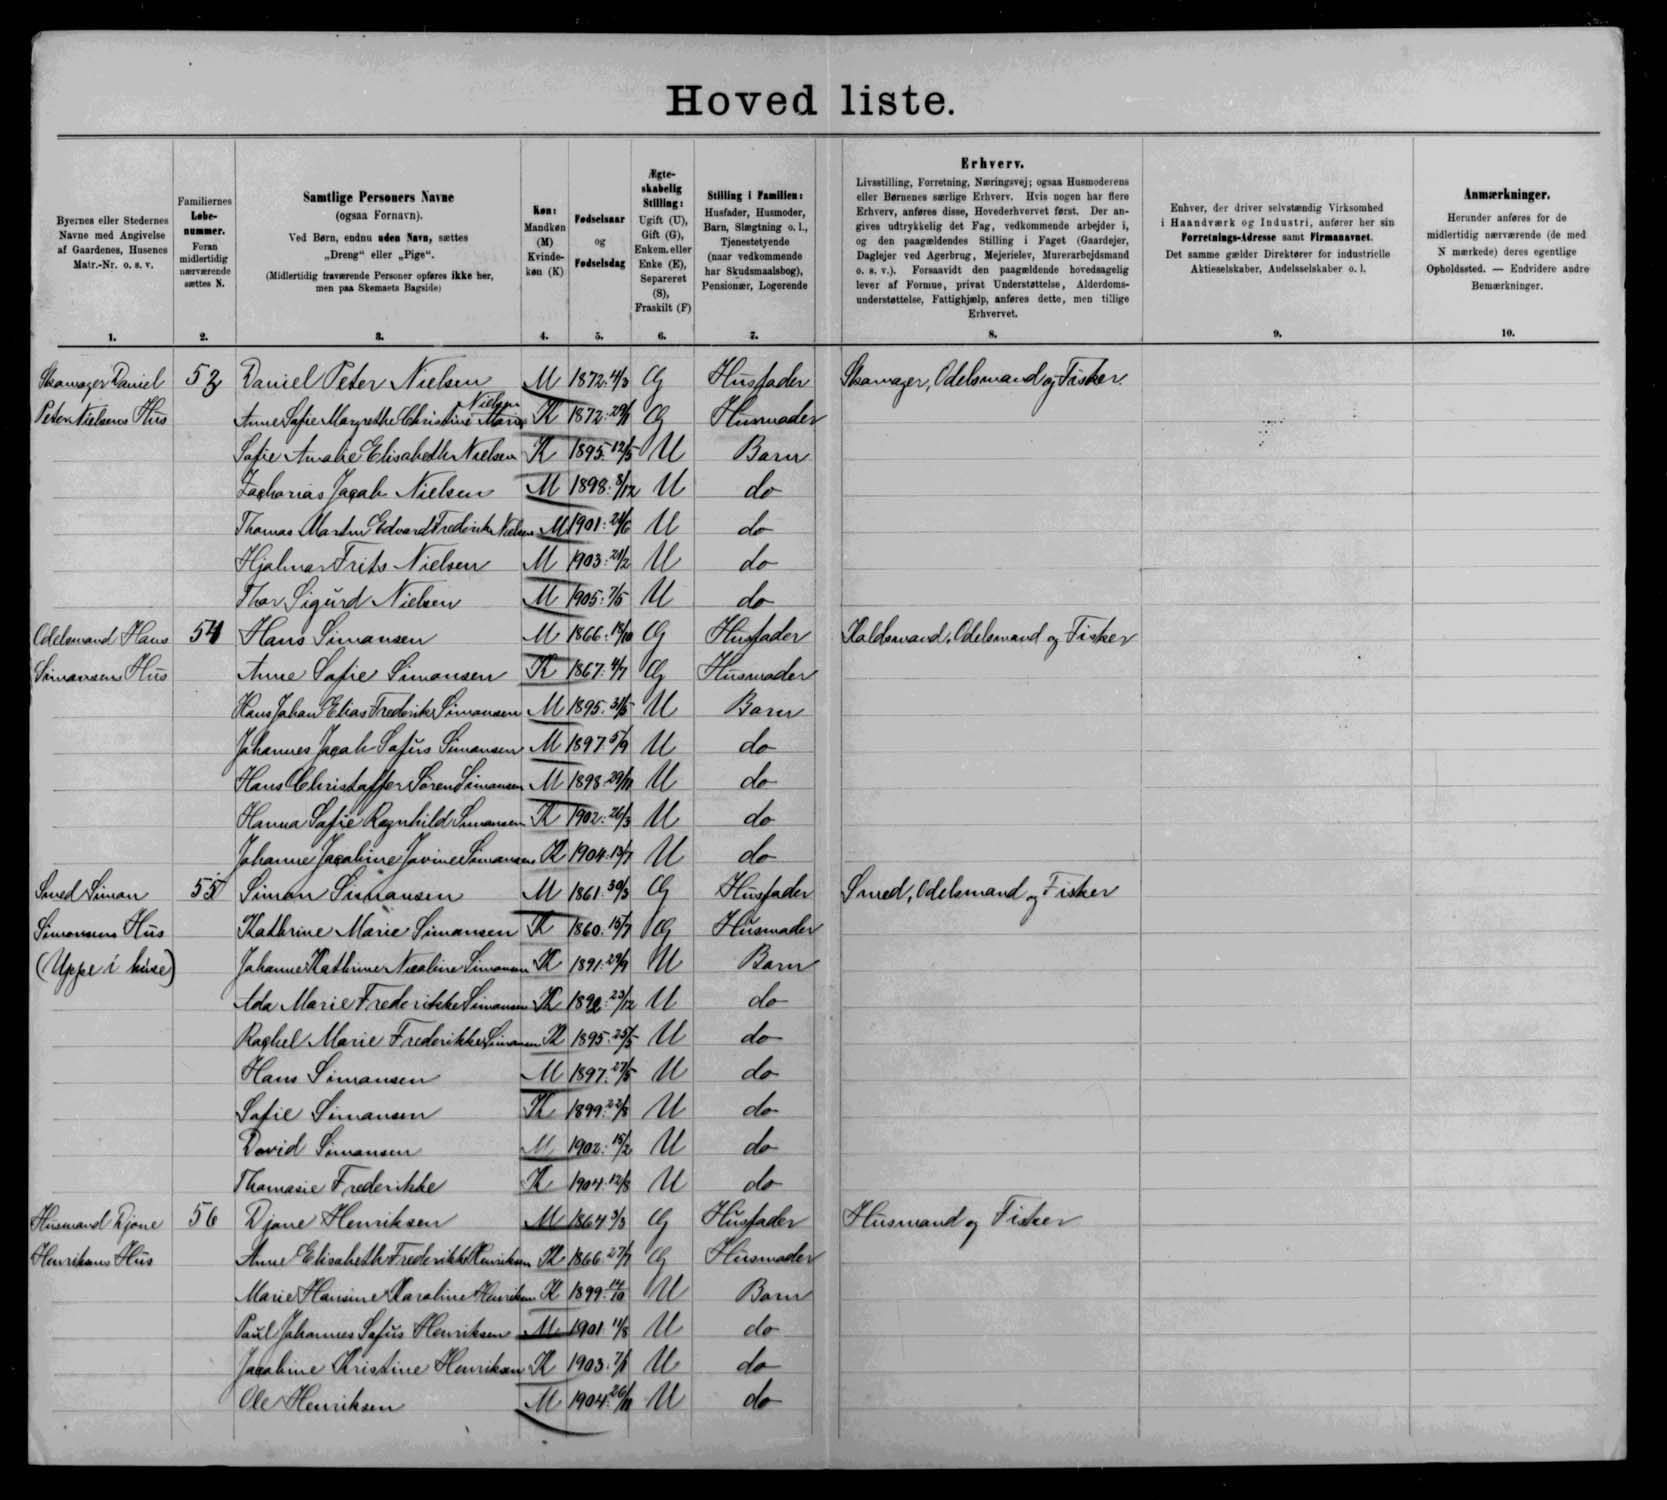 Hovedliste.
Byernes eller Stedernes
Navne med Angivelse
af Gaardenes, Husenes
Matr.-Nr. o. s. v.
1.
Familiernes
Løbe-
nummer.
Foran
midlertidig
nærværende
sættes N.
2.
Samtlige Personers Navne
(ogsaa Fornavn).
Ved Børn, endnu uden Navn, sættes
„Dreng“ eller „Pige“.
(Midlertidig fraværende Personer opføres ikke her,
men paa Skemaets Bagside)
3.
Køn:
Mandkøn
(M)
Kvinde-
køn (K)
4.
Fødselsaar
og
Fødselsdag
5.
Ægte-
skabelig
Stilling:
Ugift (U),
Gift (G),
Enkem. eller
Enke (E),
Separeret
(S),
Fraskilt (F)
6.
Stilling i Familien:
Husfader, Husmoder,
Barn, Slægtning o. l.,
Tjenestetyende
(naar vedkommende
har Skudsmaalsbog),
Pensionær, Logerende
7.
Erhverv.
Livsstilling, Forretning, Næringsvej; ogsaa Husmoderens
eller Børnenes særlige Erhverv. Hvis nogen har flere
Erhverv, anføres disse, Hovederhvervet først. Der an-
gives udtrykkelig det Fag, vedkommende arbejder i,
og den paagældendes Stilling i Faget (Gaardejer,
Daglejer ved Agerbrug, Mejerielev, Murerarbejdsmand
o. s. v.). Forsaavidt den paagældende hovedsagelig
lever af Formue, privat Understøttelse, Alderdoms-
understøttelse, Fattighjælp, anføres dette, men tillige
Erhvervet.
8.
Enhver, der driver selvstændig Virksomhed
i Haandværk og Industri, anfører her sin
Forretnings-Adresse samt Firmanavnet.
Det samme gælder Direktører for industrielle
Aktieselskaber, Andelsselskaber o. l.
9.
Anmærkninger.
Herunder anføres for de
midlertidig nærværende (de med
N mærkede) deres egentlige
Opholdssted. — Endvidere andre
Bemærkninger.
10.
Skomager Daniel 53 Daniel Peter Nielsen M 1872 4/3 G Husfader Skomager, Odelsmand og Fisker
Peter Nielsens Hus Anne Sofie Margrethe Christine Marie Nielsen K 1872 29/1 G Husmoder
Sofie Amalie Elisabeth Nielsen K 1895 12/5 U Barn
Zacharias Jacob Nielsen M 1898 8/12 U do
Thomas Martin Edvard Frederik Nielsen M 1901 24/6 U do
Hjalmar Frits Nielsen M 1903 21/2 U do
Thor Sigurd Nielsen M 1905 7/5 U do
Odelsmand Hans 54 Hans Simonsen M 1866 18/10 G Husfader Kaldsmand, Odelsmand og Fisker
Simonsens Hus Anne Sofie Simonsen K 1867 4/7 G Husmoder
Hans Johan Elias Frederik Simonsen M 1895 31/5 U Barn
Johannes Jacob Sofus Simonsen M 1897 5/9 U do
Hans Christoffer Søren Simonsen M 1898 29/11 U do
Hanna Sofie Ragnhild Simonsen K 1902 26/3 U do
Johanne Jacobine Jovine Simonsen K 1904 13/7 U do
Smed Simon 55 Simon Simonsen M 1861 30/3 G Husfader Smed, Odelsmand og Fisker
Simonsens Hus Kathrine Marie Simonsen K 1860 15/7 G Husmoder
(Uppe i huse) Johanne Kathrine Nicoline Simonsen K 1891 29/9 U Barn
Ada Marie Frederikke Simonsen K 1892 23/12 U do
Rachel Marie Frederikke Simonsen K 1895 25/5 U do
Hans Simonsen M 1897 27/5 U do
Sofie Simonsen K 1899 22/8 U do
David Simonsen M 1902 15/2 U do
Thomasie Frederikke K 1904 12/8 U do
Husmand Djone 56 Djone Henriksen M 1864 3/3 G Husfader Husmand og Fisker
Henriksens Hus Anne Elisabeth Frederikke Henriksen K 1866 27/7 G Husmoder
Marie Hansine Karoline Henriksen K 1899 14/10 U Barn
Paul Johannes Sofus Henriksen M 1901 11/8 U do
Jacobine Kristine Henriksen K 1903 7/1 U do
Ole Henriksen M 1904 26/11 U do